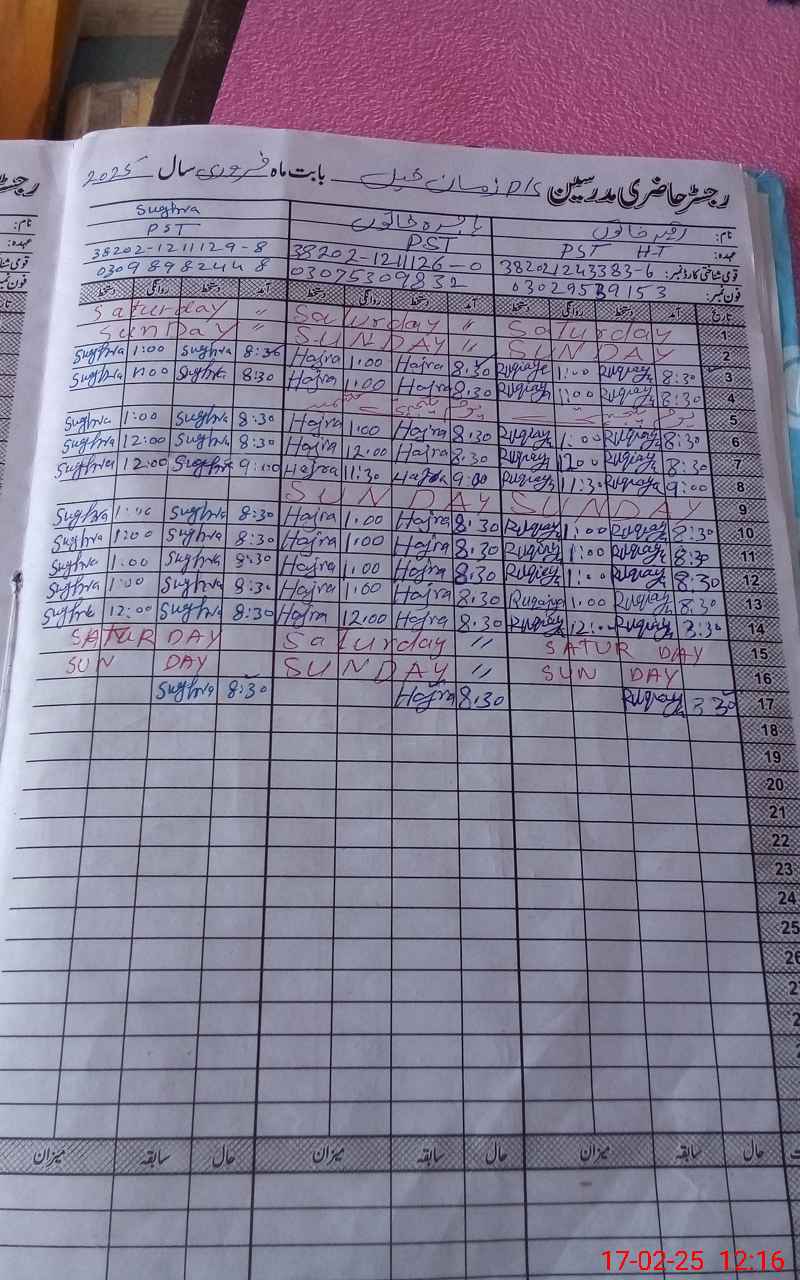 رجسٹر حاضری مدرسین P/S زمان خیل بابت ماہ فروری سال 2025
نام: رقیہ خاتون ہاجرہ خاتون Sughra
عہدہ: PST H-T PST PST
قومی شناختی کارڈ نمبر: 38202-1211126-0 38202-1211129-8
فون نمبر: 03075309832 03098982448
تاریخ آمد دستخط روانگی دستخط آمد دستخط روانگی دستخط آمد دستخط روانگی دستخط
Saturday " Saturday " Saturday 1
SunDay " SUNDAY " SUNDAY 2
Sughra 1:00 Sughra 8:30 Hajra 1:00 Hajra 8:30 Ruqiaya 1:00 Ruqiaya 8:30 3
Sughra 1:00 Sughra 8:30 Hajra 1:00 Hajra 8:30 Ruqiaya 1:00 Ruqiaya 8:30 4
5
Sughra 1:00 Sughra 8:30 Hajra 1:00 Hajra 8:30 Ruqiaya 1:00 Ruqiaya 8:30 6
Sughra 12:00 Sughra 8:30 Hajra 12:00 Hajra 8:30 Ruqiaya 1200 Ruqiaya 8:30 7
Sughra 12:00 Sughra 9:00 Hajra 11:30 Hajra 9:00 Ruqiaya 11:30 Ruqiaya 9:00 8
SUNDAY SUNDAY 9
Sughra 1:00 Sughra 8:30 Hajra 1:00 Hajra 8:30 Ruqiaya 1:00 Ruqiaya 8:30 10
Sughra 1:00 Sughra 8:30 Hajra 1:00 Hajra 8:30 Ruqiaya 1:00 Ruqiaya 8:30 11
Sughra 1:00 Sughra 8:30 Hajra 1:00 Hajra 8:30 Ruqiaya 1:00 Ruqiaya 8:30 12
Sughra 1:00 Sughra 8:30 Hajra 1:00 Hajra 8:30 Ruqiaya 1:00 Ruqiaya 8:30 13
Sughra 12:00 Sughra 8:30 Hajra 12:00 Hajra 8:30 Ruqiaya 12:00 Ruqiaya 8:30 14
SATUR DAY Saturday " SATUR DAY 15
SUN DAY SUNDAY " SUN DAY 16
Sughra 8:30 Hajra 8:30 Ruqiaya 8:30 17
18
19
20
21
22
23
24
25
حال سابقہ میزان حال سابقہ میزان حال سابقہ میزان
17-02-25 12:16